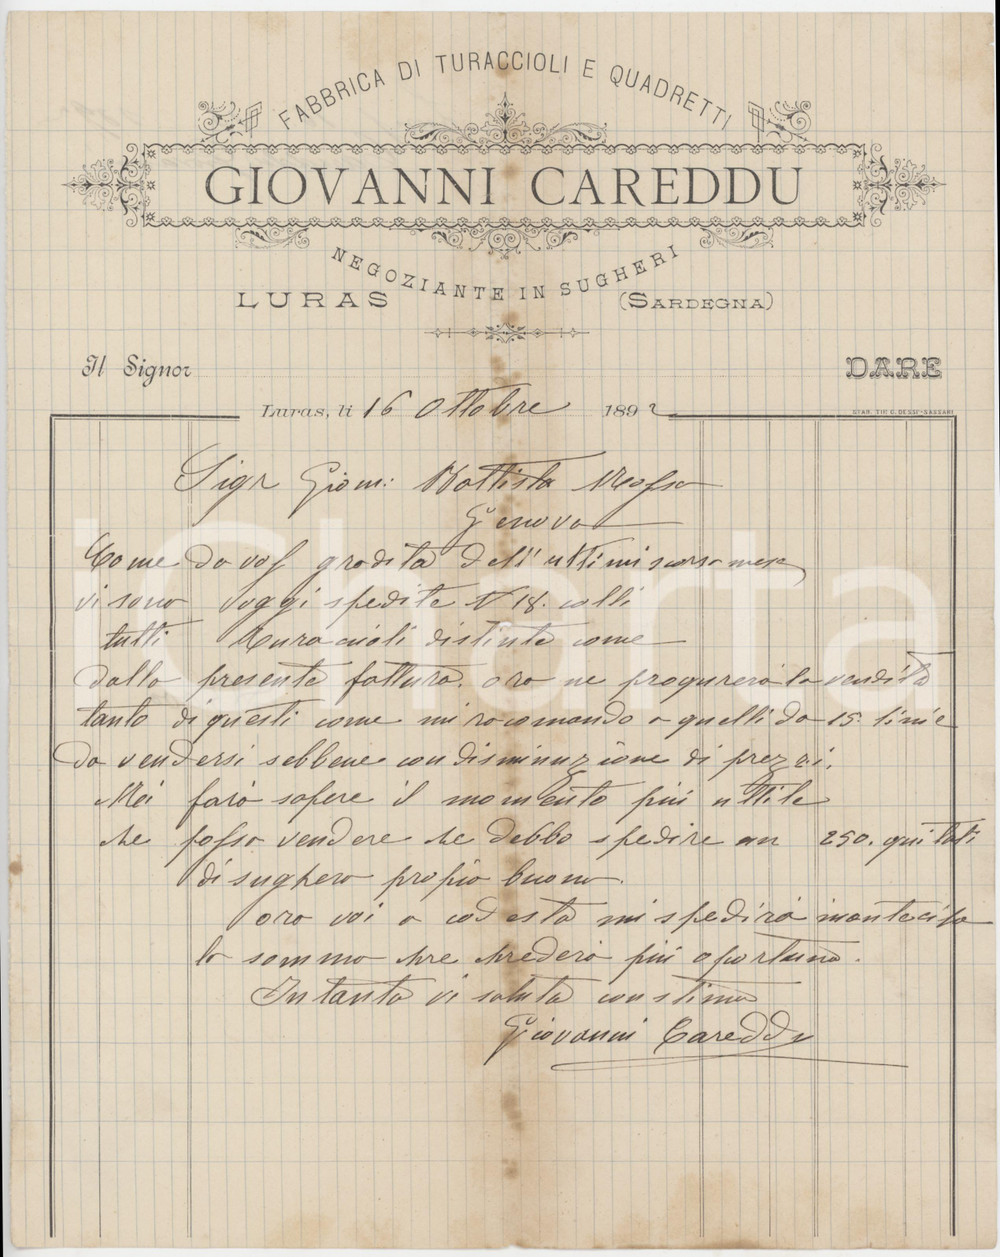 FABBRICA DI TURACCIOLI E QUADRETTI
GIOVANNI CAREDDU
NEGOZIANTE IN SUGHERI
LURAS (SARDEGNA)
Il Signor DARE
Luras, li 16 Ottobre 1892
STAB. TIP. G. DESSI-SASSARI
Sigr Giom: Battista
Genova
Come da vos gradita dell'ultimi scorso mese
vi sono voggi spedite N 18. colli
tutti turaccioli distinte come
dalla presente fattura. ora ne progurerà la vendita
tanto di questi come mi racomando a quelli da 15. linie
da vendersi sebbene con disminuzione di prezzi.
Mei farà sapere il momento più uttile
che possa vendere che debbo spedire un 250. quintali
di sughero propio buono.
ora voi a codesta mi spedirà inantecipo
la somma che chrederà più oportuna.
Intanto vi saluta con stima
Giovanni Careddu
iCharta